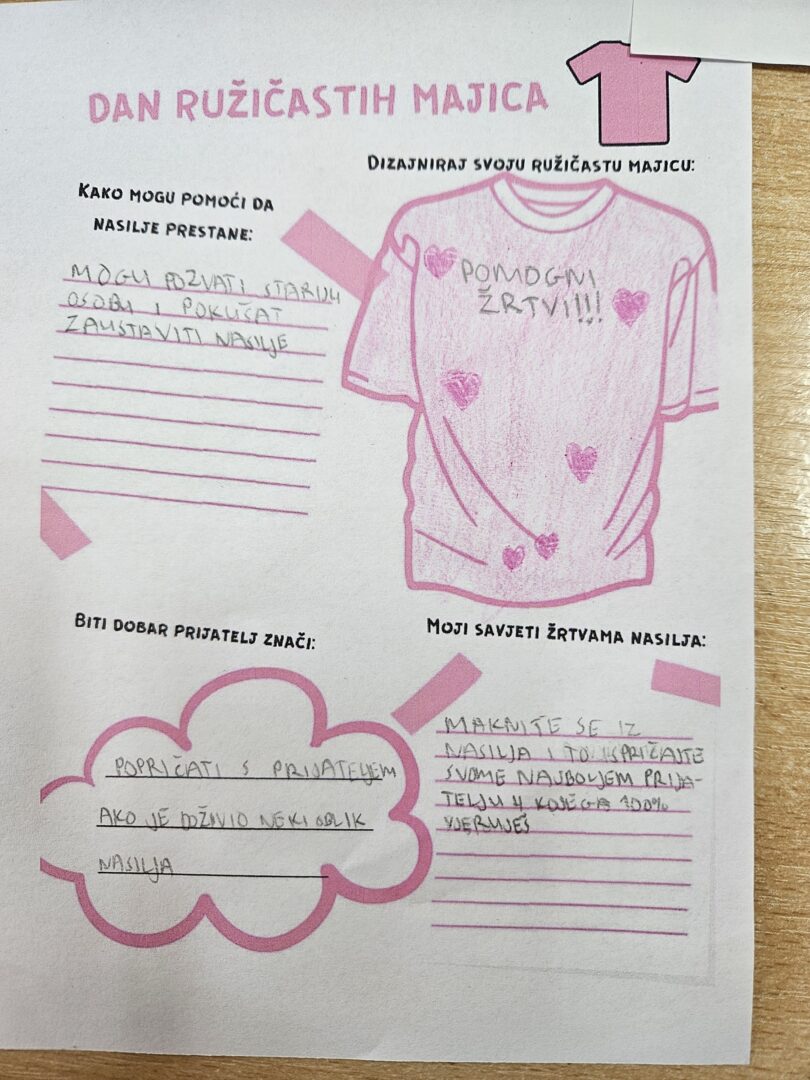 DAN RUŽIČASTIH MAJICA
DIZAJNIRAJ SVOJU RUŽIČASTU MAJICU:
KAKO MOGU POMOĆI DA
NASILJE PRESTANE:
MOGU POZVATI STARIJU
OSOBU I POKUŠAT
ZAUSTAVITI NASILJE
POMOGNI
ŽRTVI!!!
BITI DOBAR PRIJATELJ ZNAČI:
POPRIČATI S PRIJATELJEM
AKO JE DOŽIVIO NEKI OBLIK
NASILJA
MOJI SAVJETI ŽRTVAMA NASILJA:
MAKNITE SE IZ
NASILJA I TO ISPRIČAJTE
SVOME NAJBOLJEM PRIJA-
TELJU U KOJEGA 100%
VJERUJEŠ